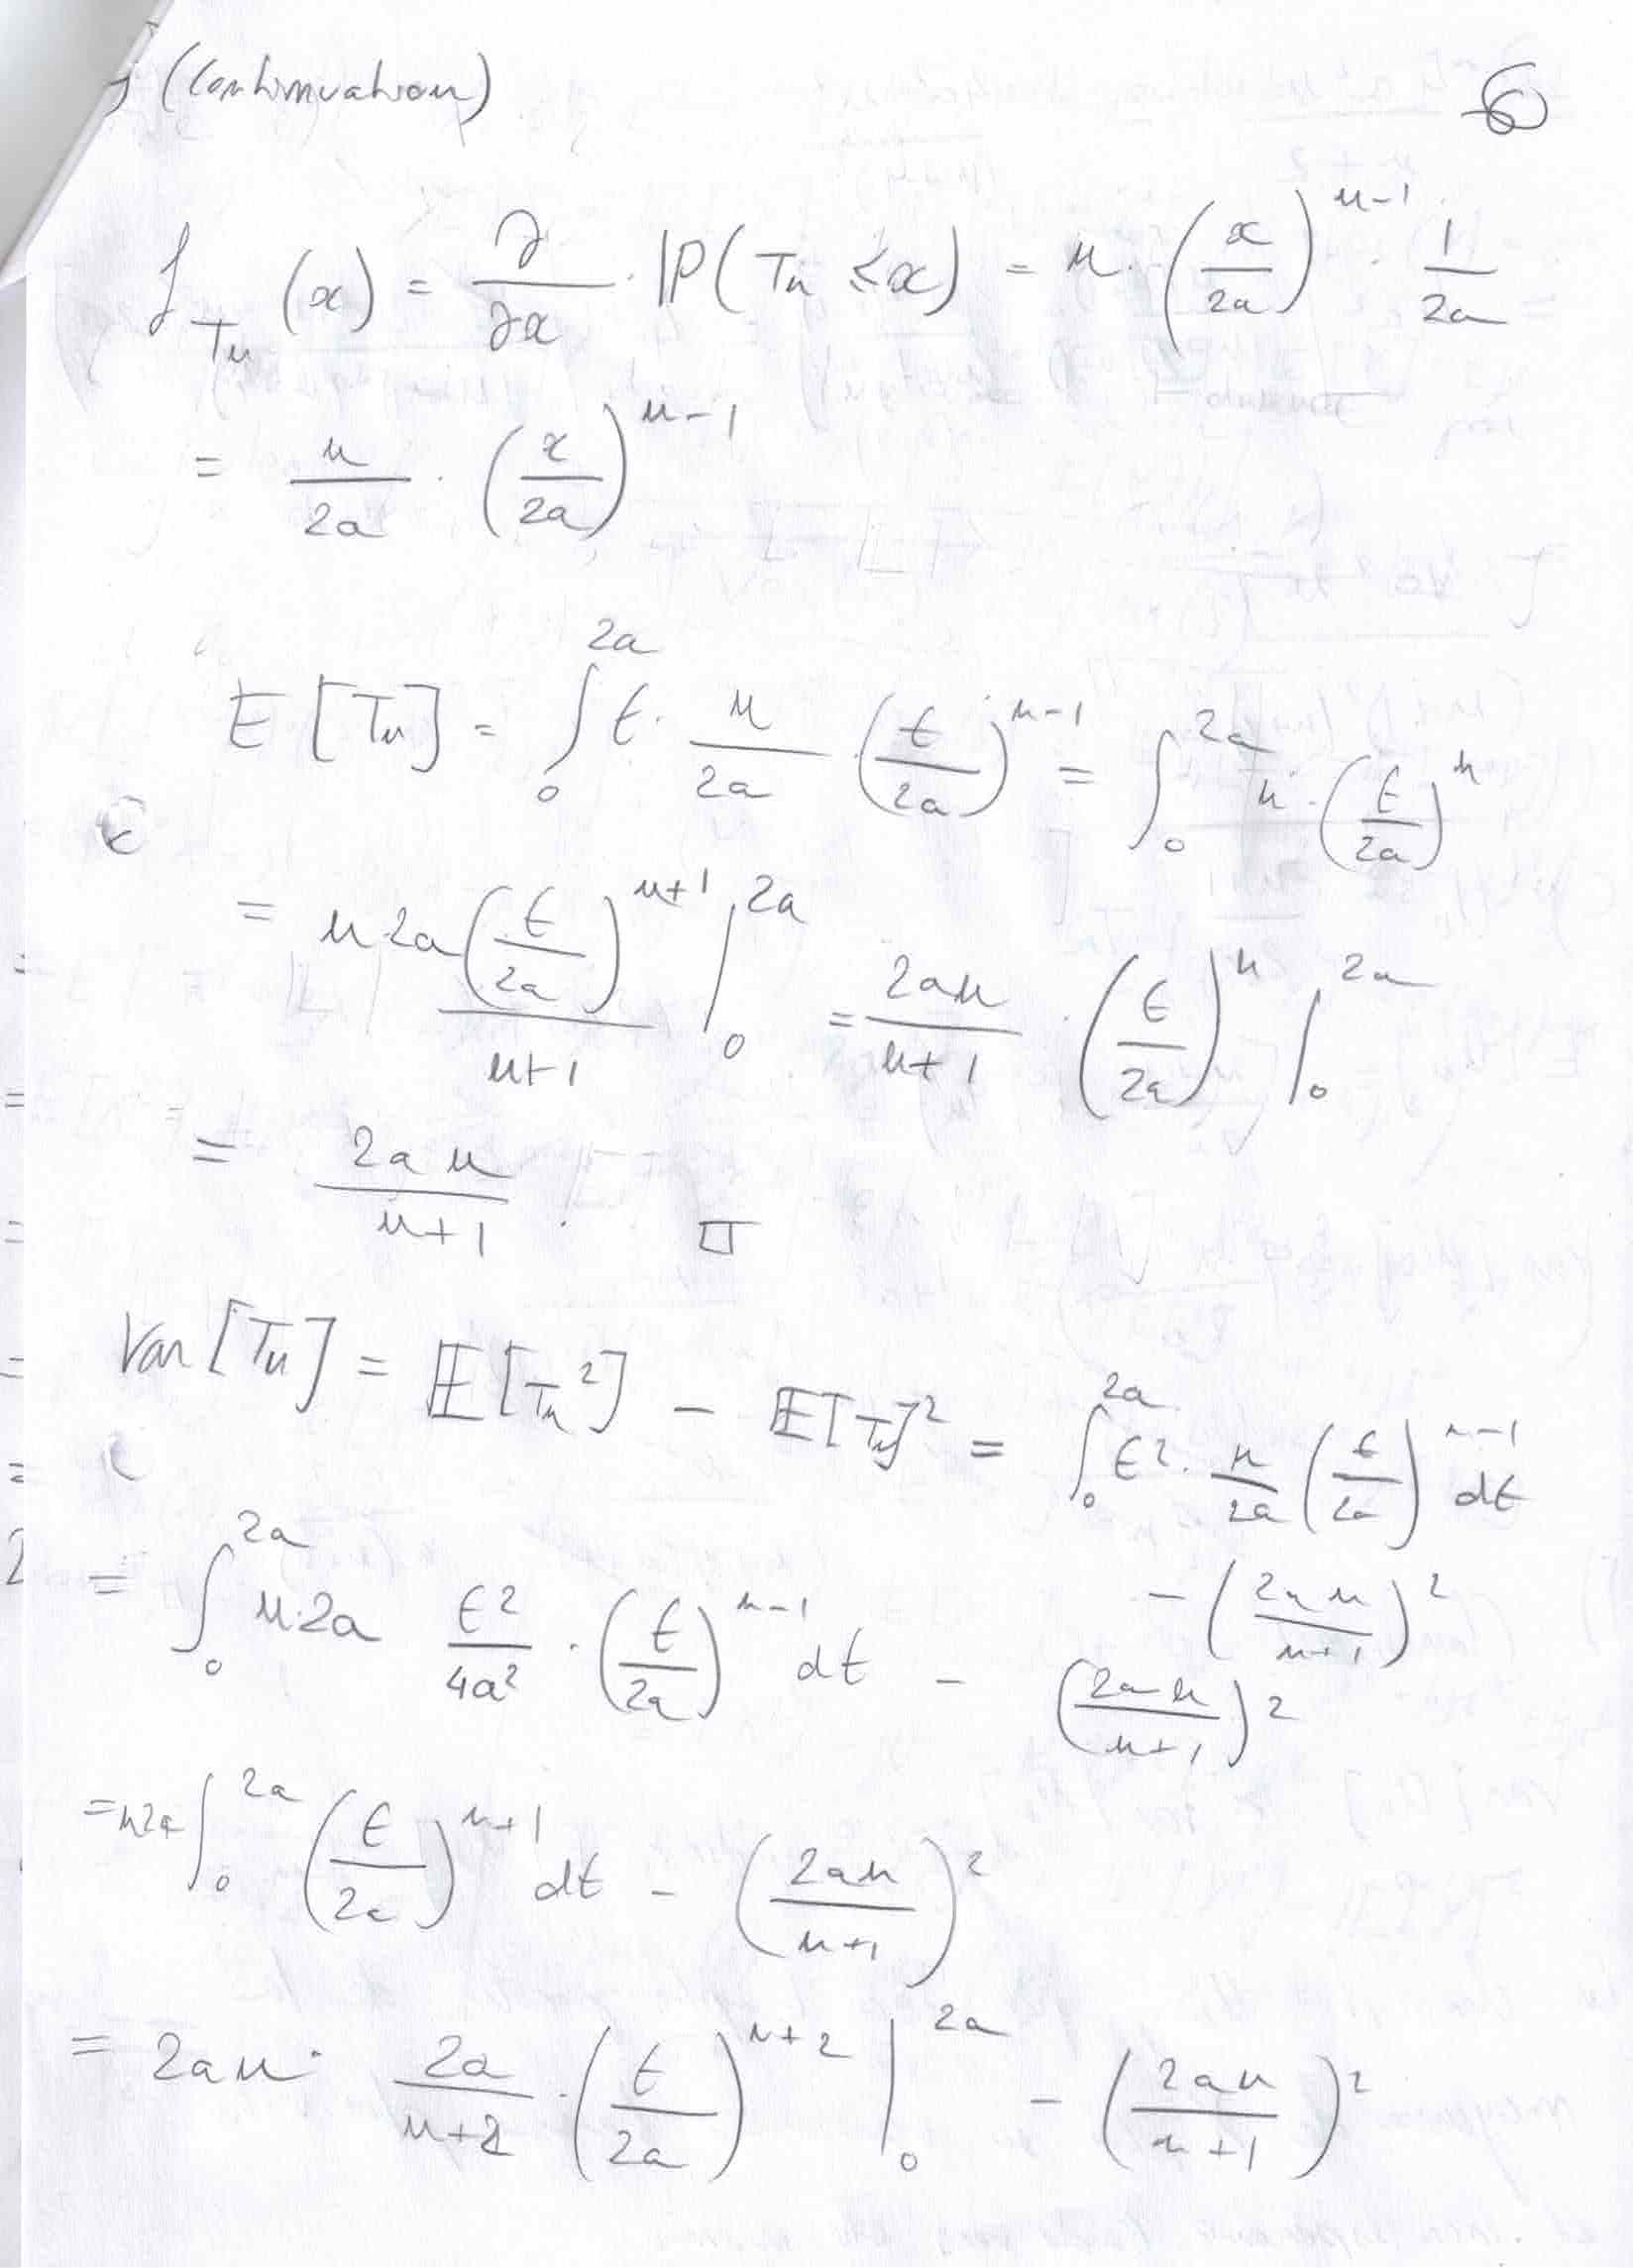 (Continuation) 6
f_{Tn}(x) = ∂/∂x · ℙ(Tn ≤ x) = n · (x/2a)^{n-1} · 1/2a
= n/2a · (x/2a)^{n-1}
E[Tn] = ∫_0^{2a} t · n/2a · (t/2a)^{n-1} = ∫_0^{2a} n · (t/2a)^n
= n 2a (t/2a)^{n+1}/n+1 |_0^{2a} = 2an/n+1 · (t/2a)^n |_0^{2a}
= 2an/n+1 . □
Var[Tn] = 𝔼[Tn²] - 𝔼[Tn]² = ∫_0^{2a} t² · n/2a (t/2a)^{n-1} dt
- (2an/n+1)²
= ∫_0^{2a} n·2a t²/4a² · (t/2a)^{n-1} dt - (2an/n+1)²
= n2a ∫_0^{2a} (t/2a)^{n+1} dt - (2an/n+1)²
= 2an · 2a/n+2 · (t/2a)^{n+2} |_0^{2a} - (2an/n+1)²